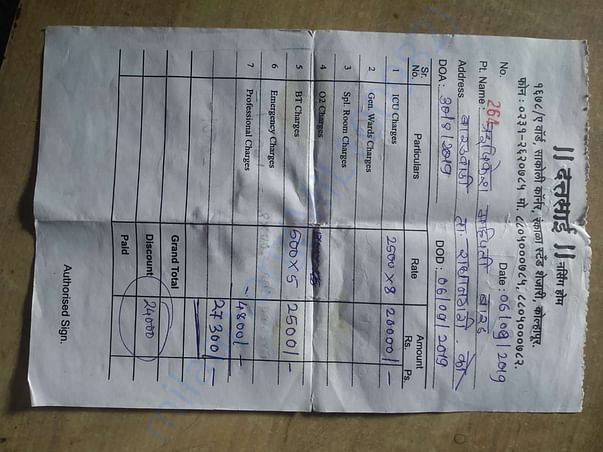 || दत्तसाई || नर्सिंग होम
१६७८/ए वॉर्ड, साकोली कॉर्नर, रंकाळा स्टँड शेजारी, कोल्हापूर.
फोन : ०२३१-२६२०७८५ मो. ८८०५०००७८५, ८८०५०००७८२.
No. 264 Date : 06/09/2019
Pt. Name :
Address
DOA : 30/8/2019 DOD : 06/09/2019
Sr. No. Particulars Rate Amount Rs. Ps.
1 ICU Charges 2500 × 8 20000/-
2 Gen. Wards Charges
3 Spl. Room Charges
4 O2 Charges
5 BT Charges 500 × 5 2500/-
6 Emergency Charges
7 Professional Charges - 4800/-
Grand Total 27300/-
Discount 24000
Paid
Authorised Sign.